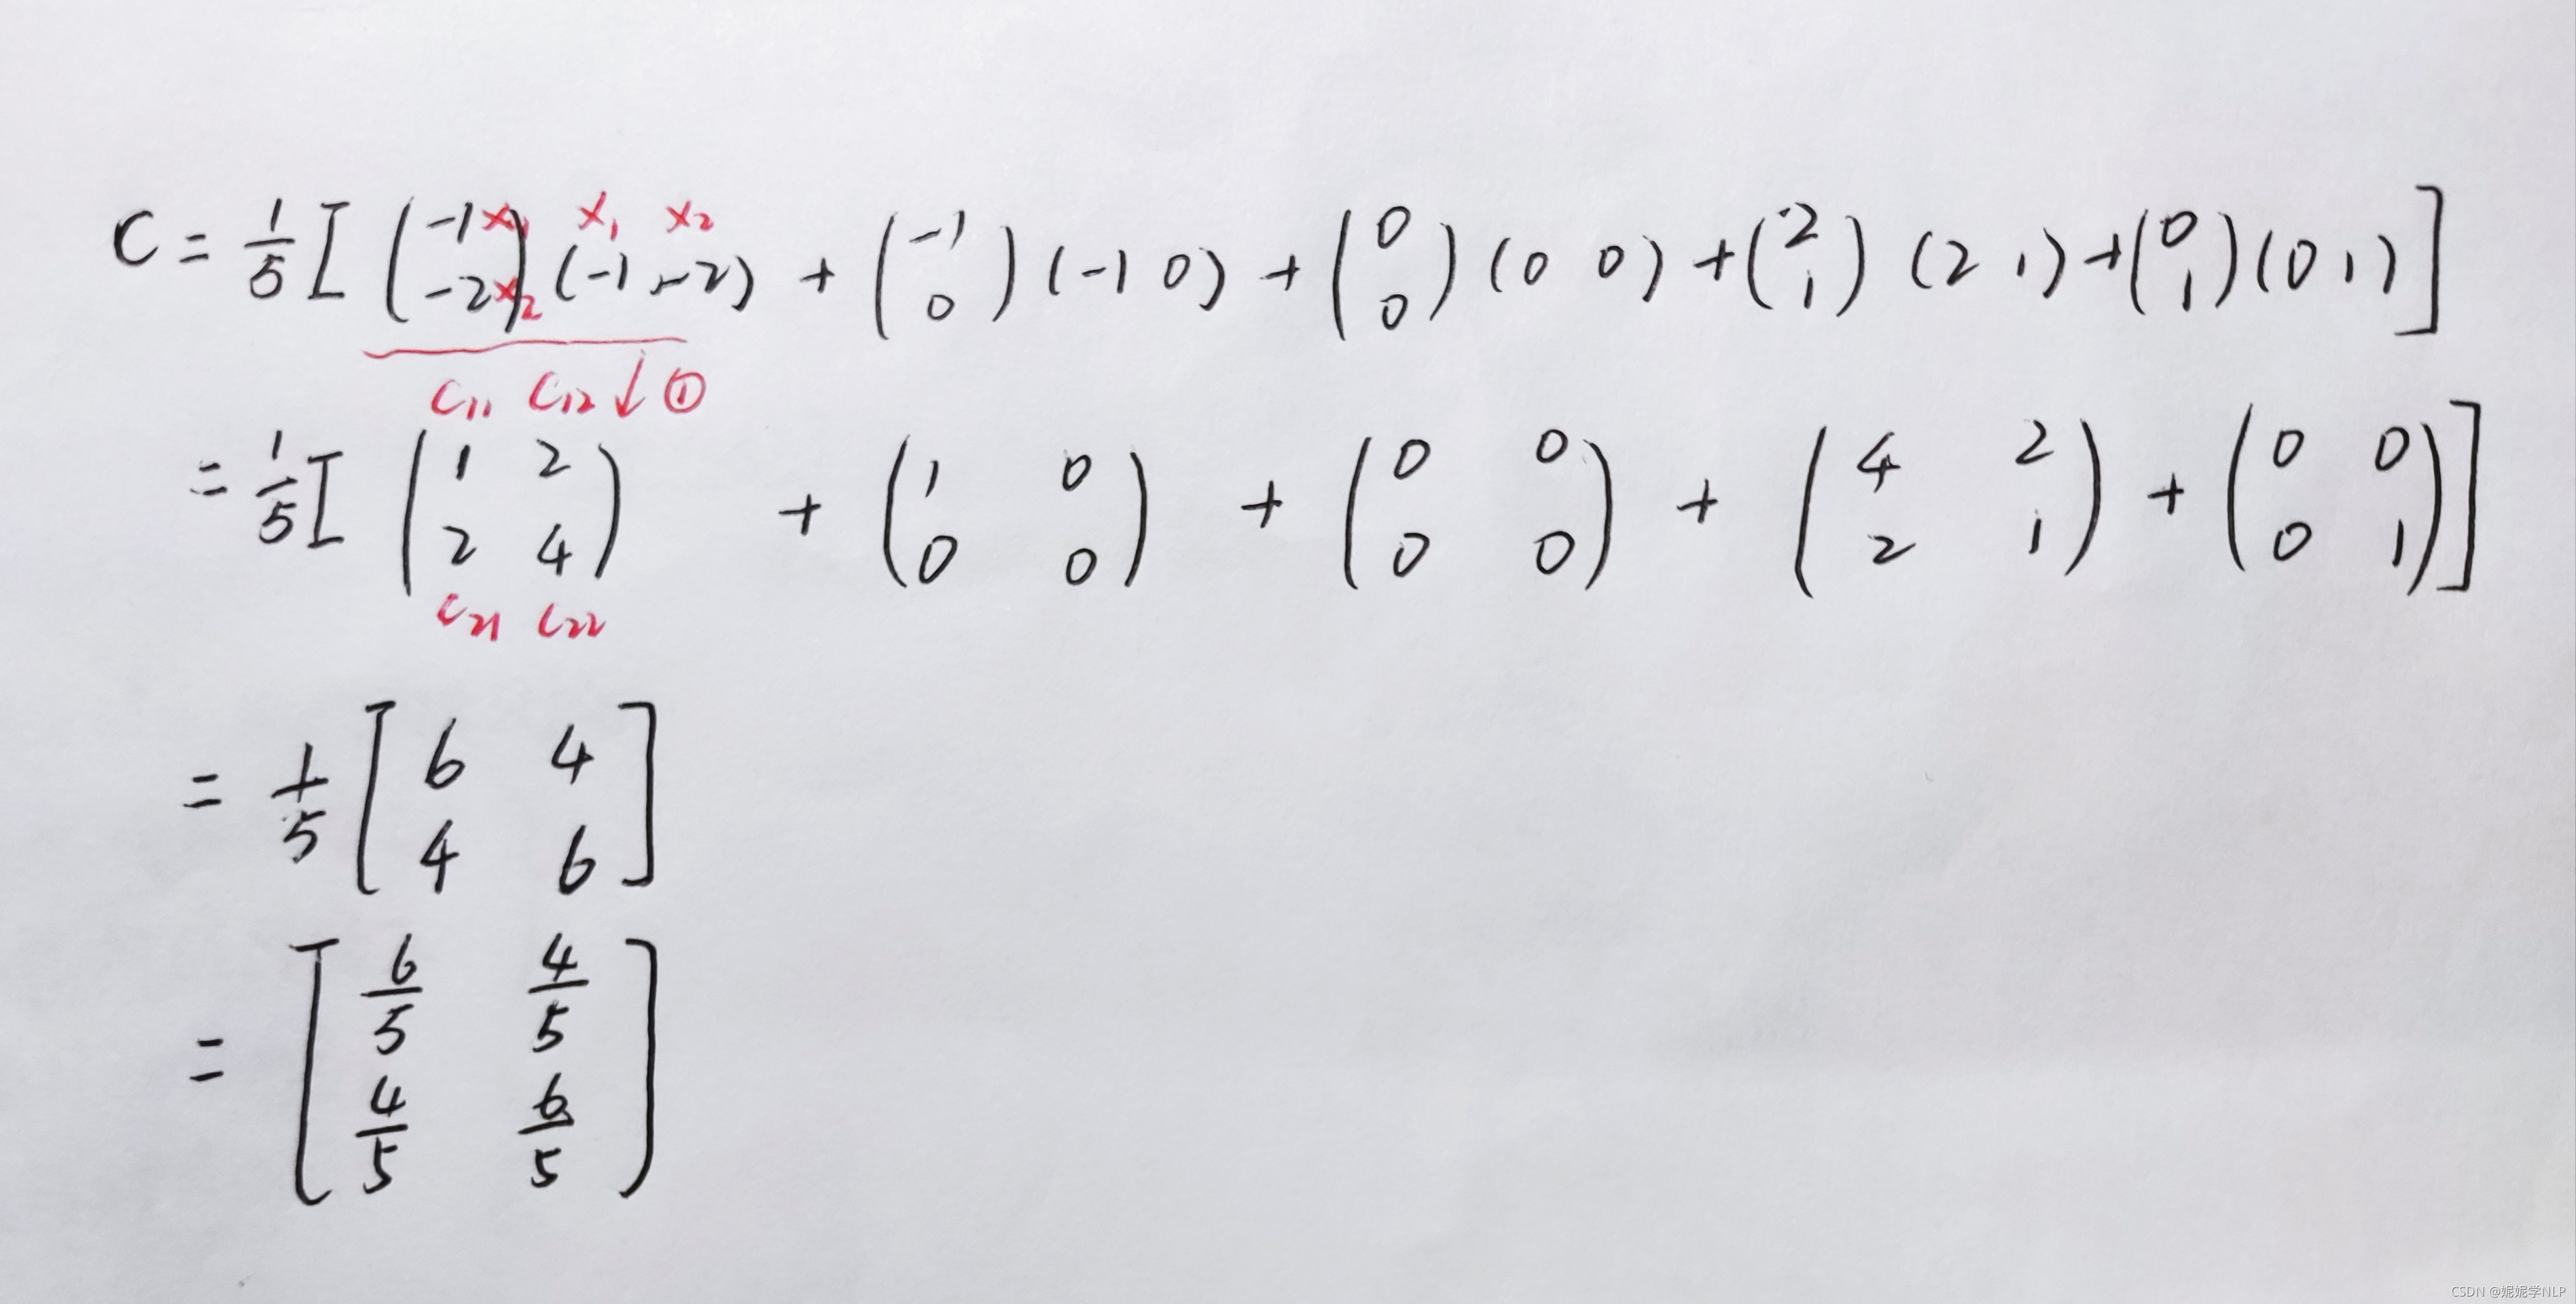 x₁ x₁ x₂
C = 1/5 [ (-1 -2) (-1 -2) + (-1 0) (-1 0) + (0 0) (0 0) + (2 1) (2 1) + (0 1) (0 1) ]
x₂
C₁₁ C₁₂ ↓ ①
= 1/5 [ (1 2; 2 4) + (1 0; 0 0) + (0 0; 0 0) + (4 2; 2 1) + (0 0; 0 1) ]
C₂₁ C₂₂
= 1/5 [ 6 4; 4 6 ]
= [ 6/5 4/5; 4/5 6/5 ]
CSDN @妮妮学NLP